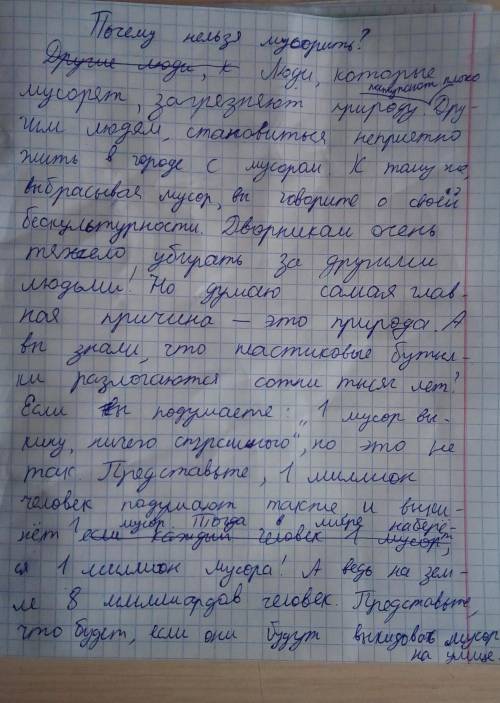 Почему нельзя мусорить?
Другие люди, к Люди, которые
поступают плохо
мусорят, загрязняют природу. Дру-
гим людям, становиться неприятно
жить в городе с мусором. К тому же,
выбрасывая мусор, вы говорите о своей
бескультурности. Дворникам очень
тяжело убирать за другими
людьми! Но думаю самая глав-
ная причина — это природа. А
вы знали, что пластиковые бутыл-
ки разлогаются сотни тысяч лет?
Если вы подумаете: „1 мусор вы-
кину, ничего страшного", но это не
так. Представьте, 1 миллион
человек подумают также и выки-
нет 1 мусор. Тогда в мире наберё-
если каждый человек 1 мусор,
ся 1 миллион мусора! А ведь на зем-
ле 8 миллиардов человек. Представьте,
что будет, если они будут выкидовать мусор
на улице.